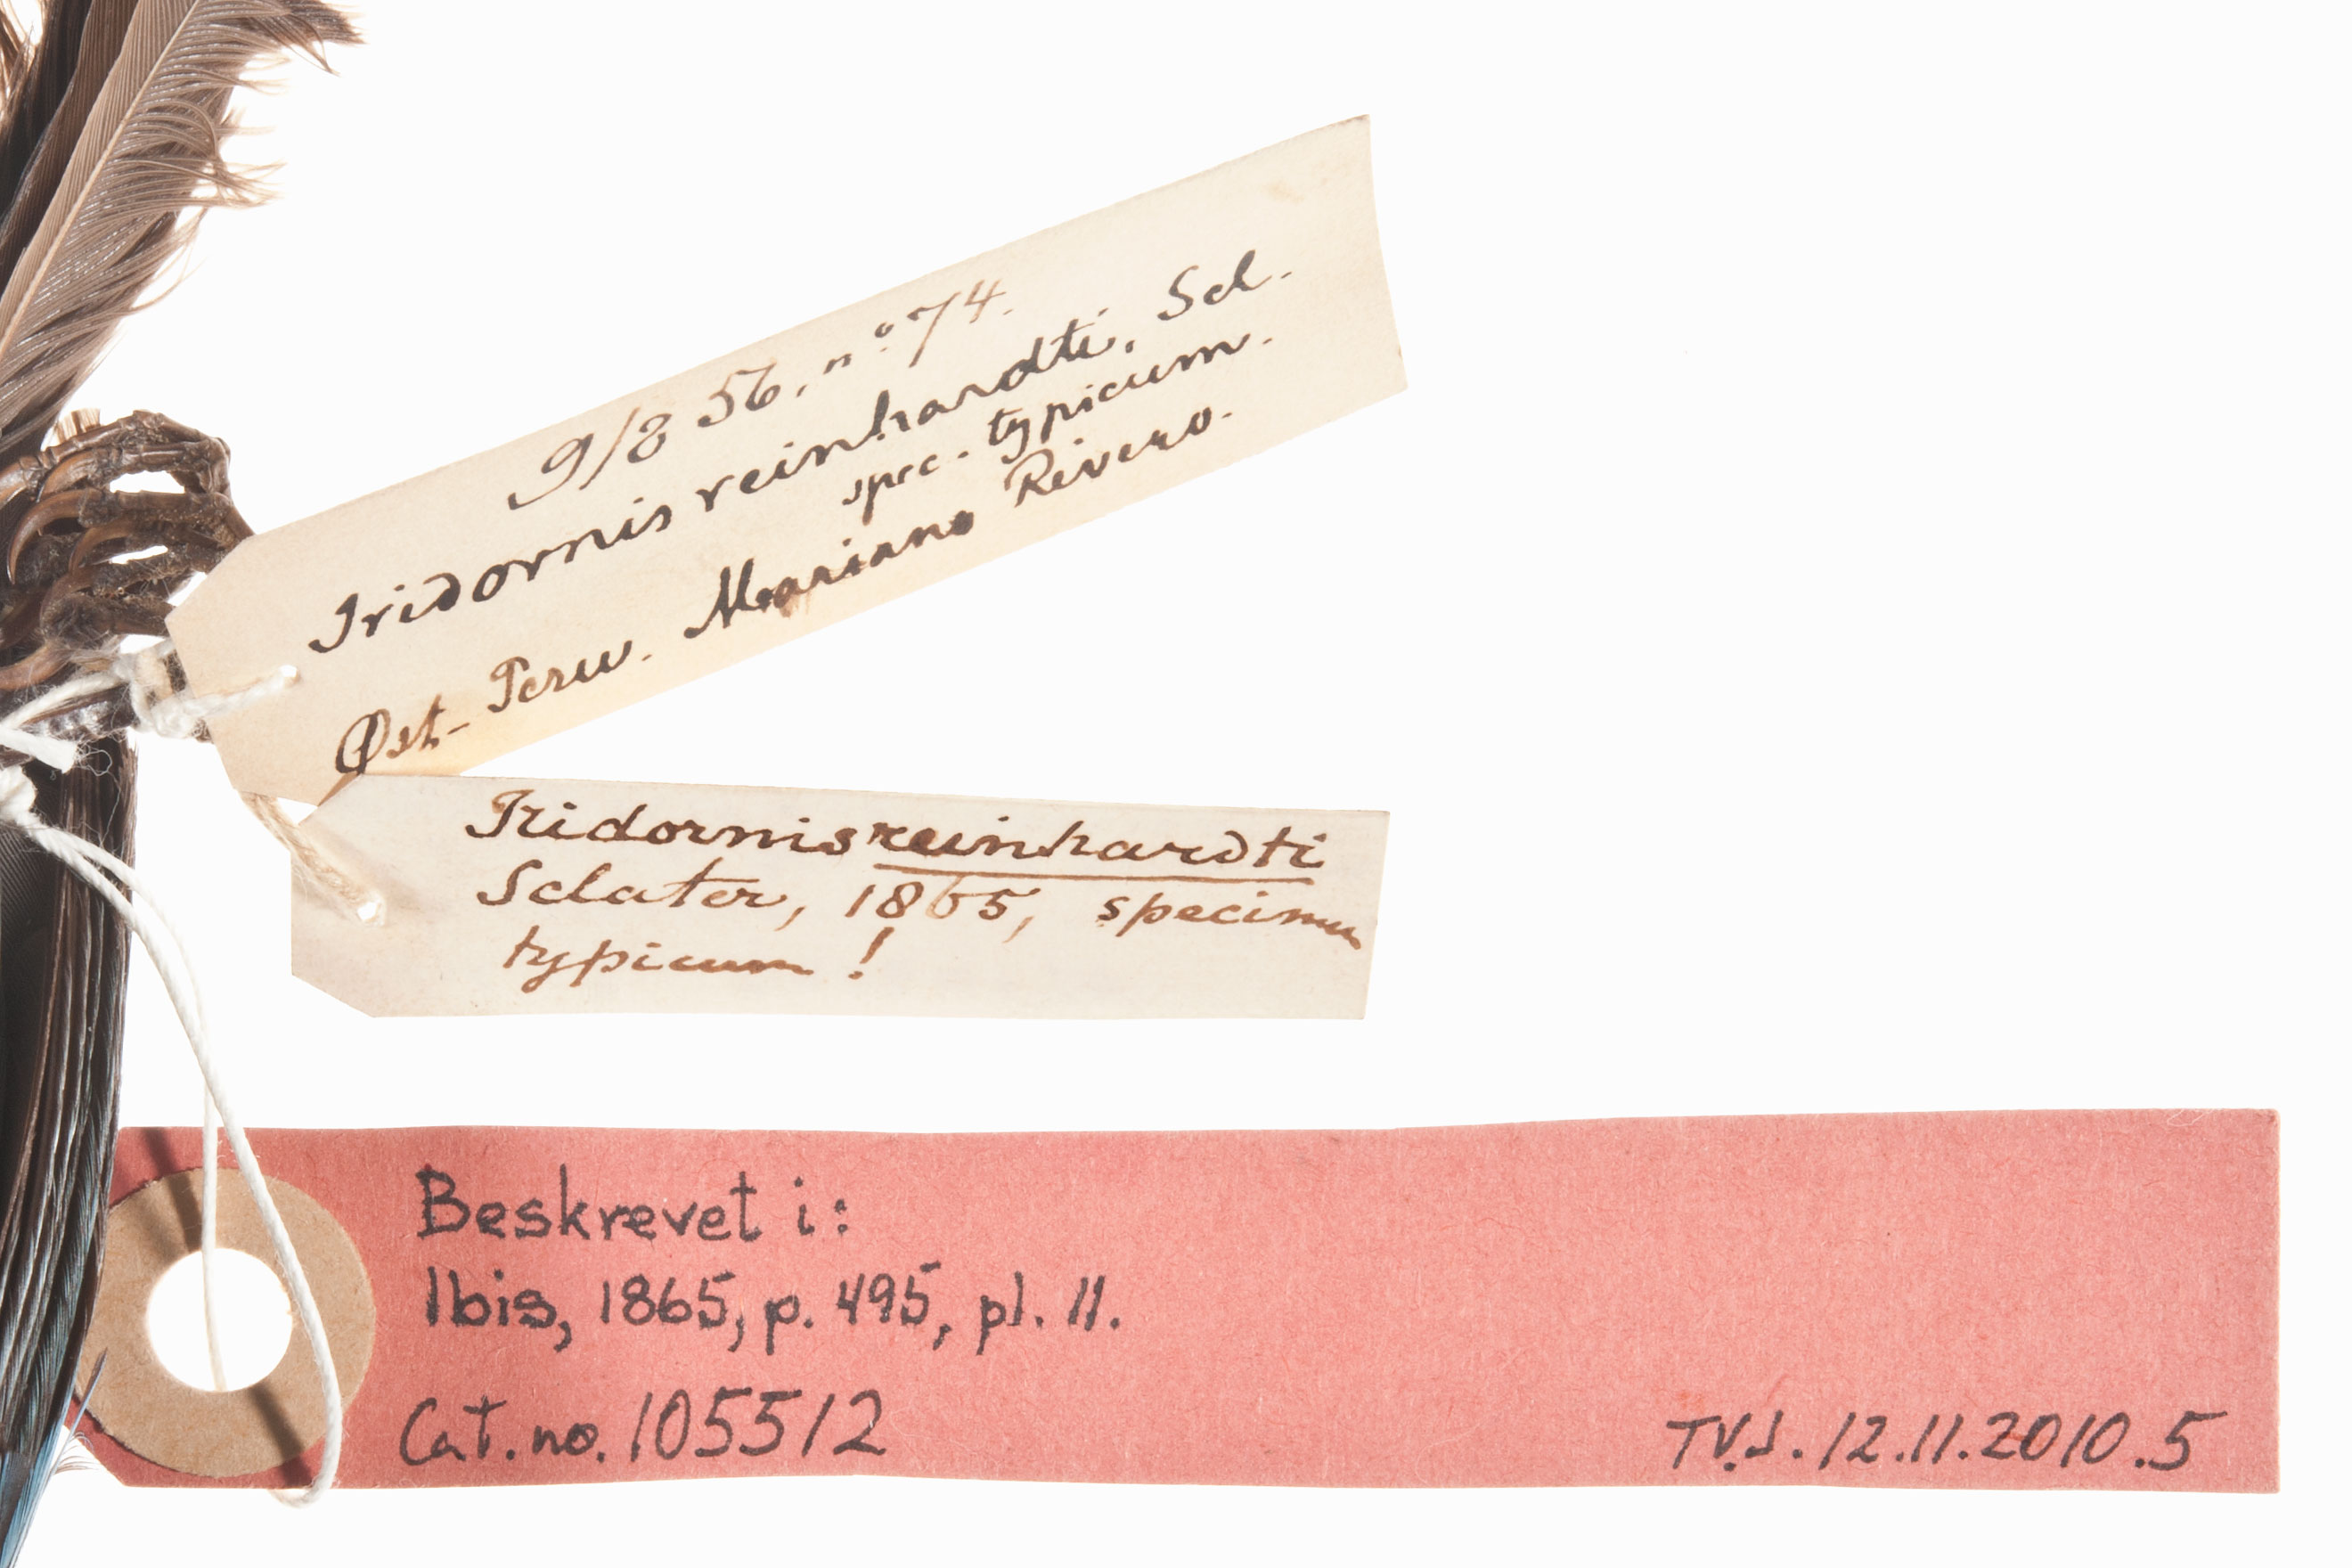 9/8 56. no. 74.
Iridornis reinhardti. Scl.
spec. typicum.
Øst-Peru. Mariano Rivero.
Iridornis reinhardti
Sclater, 1865, specimen
typicum!
Beskrevet i:
Ibis, 1865, p. 495, pl. 11.
Cat. no. 105512
TVJ. 12.11.2010.5